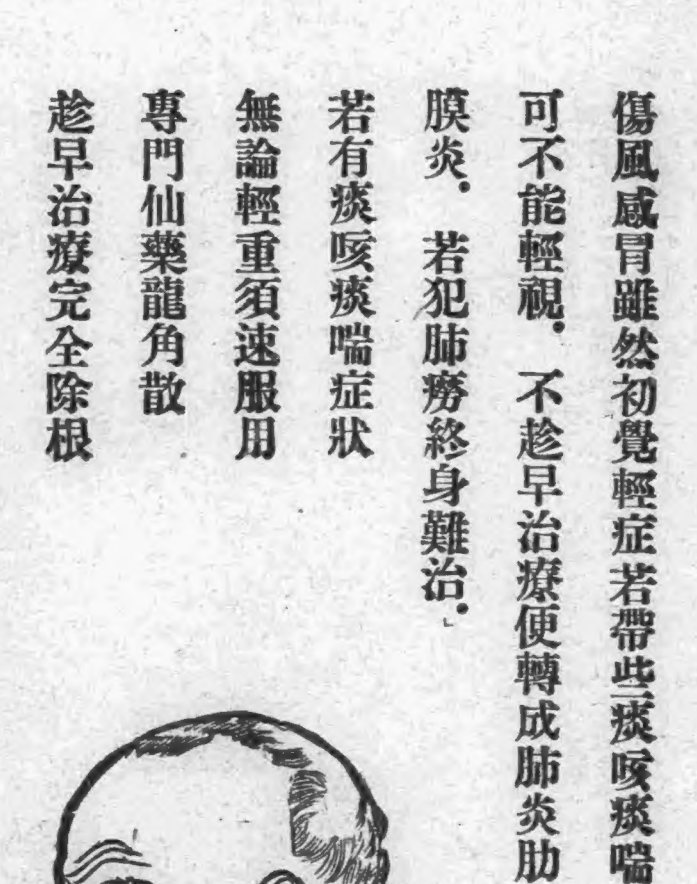 傷風感冒雖然初覺輕症若帶些痰咳痰喘
可不能輕視.不趁早治療便轉成肺炎肋
膜炎.若犯肺癆終身難治.」
若有痰咳痰喘症狀
無論輕重須速服用
專門仙藥龍角散
趁早治療完全除根